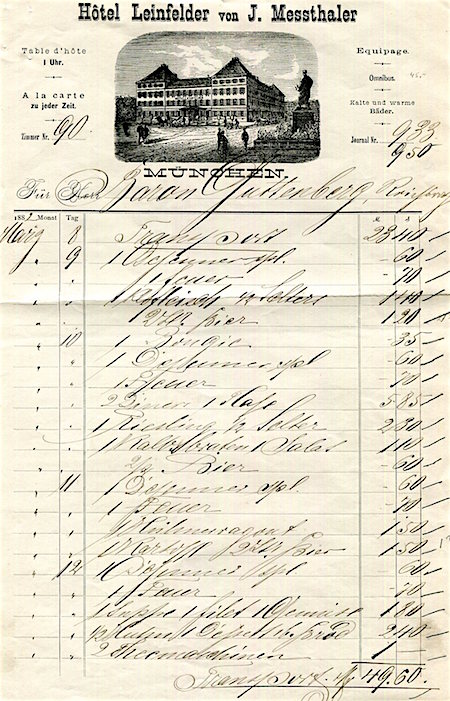 Hôtel Leinfelder von J. Messthaler
Table d'hôte
1 Uhr.
A la carte
zu jeder Zeit.
Zimmer Nr. 90.
Equipage.
Omnibus.
Kalte und warme
Bäder.
Journal Nr. 933
950
MÜNCHEN.
Für Herr Baron Guttenberg,
188 Monat Tag M. S
März 8 Transport 23 40
" 9 1 Déjeuner spl. - 60
1 Feuer - 70
½ Selters 1 40
2 Bier 1 20
" 10 1 Bougie - 35
1 Déjeuner spl - 60
1 Feuer - 70
2 Diner 1 5 85
1 Riesling ½ Selter 2 30
1 Kalbsbraten 1 Salat 1 10
Bier - 60
" 11 1 Déjeuner spl. - 60
1 Feuer - 70
1 Hühnerragout 1 50
Bier 1 50
" 12 1 Déjeuner spl 60
1 Feuer - 70
1 Suppe 1 filet 1 Gemüse 1 80
½ Huhn 1 Brod 2 40
2 Theemaschinen 1 —
Transport. M 49.60.